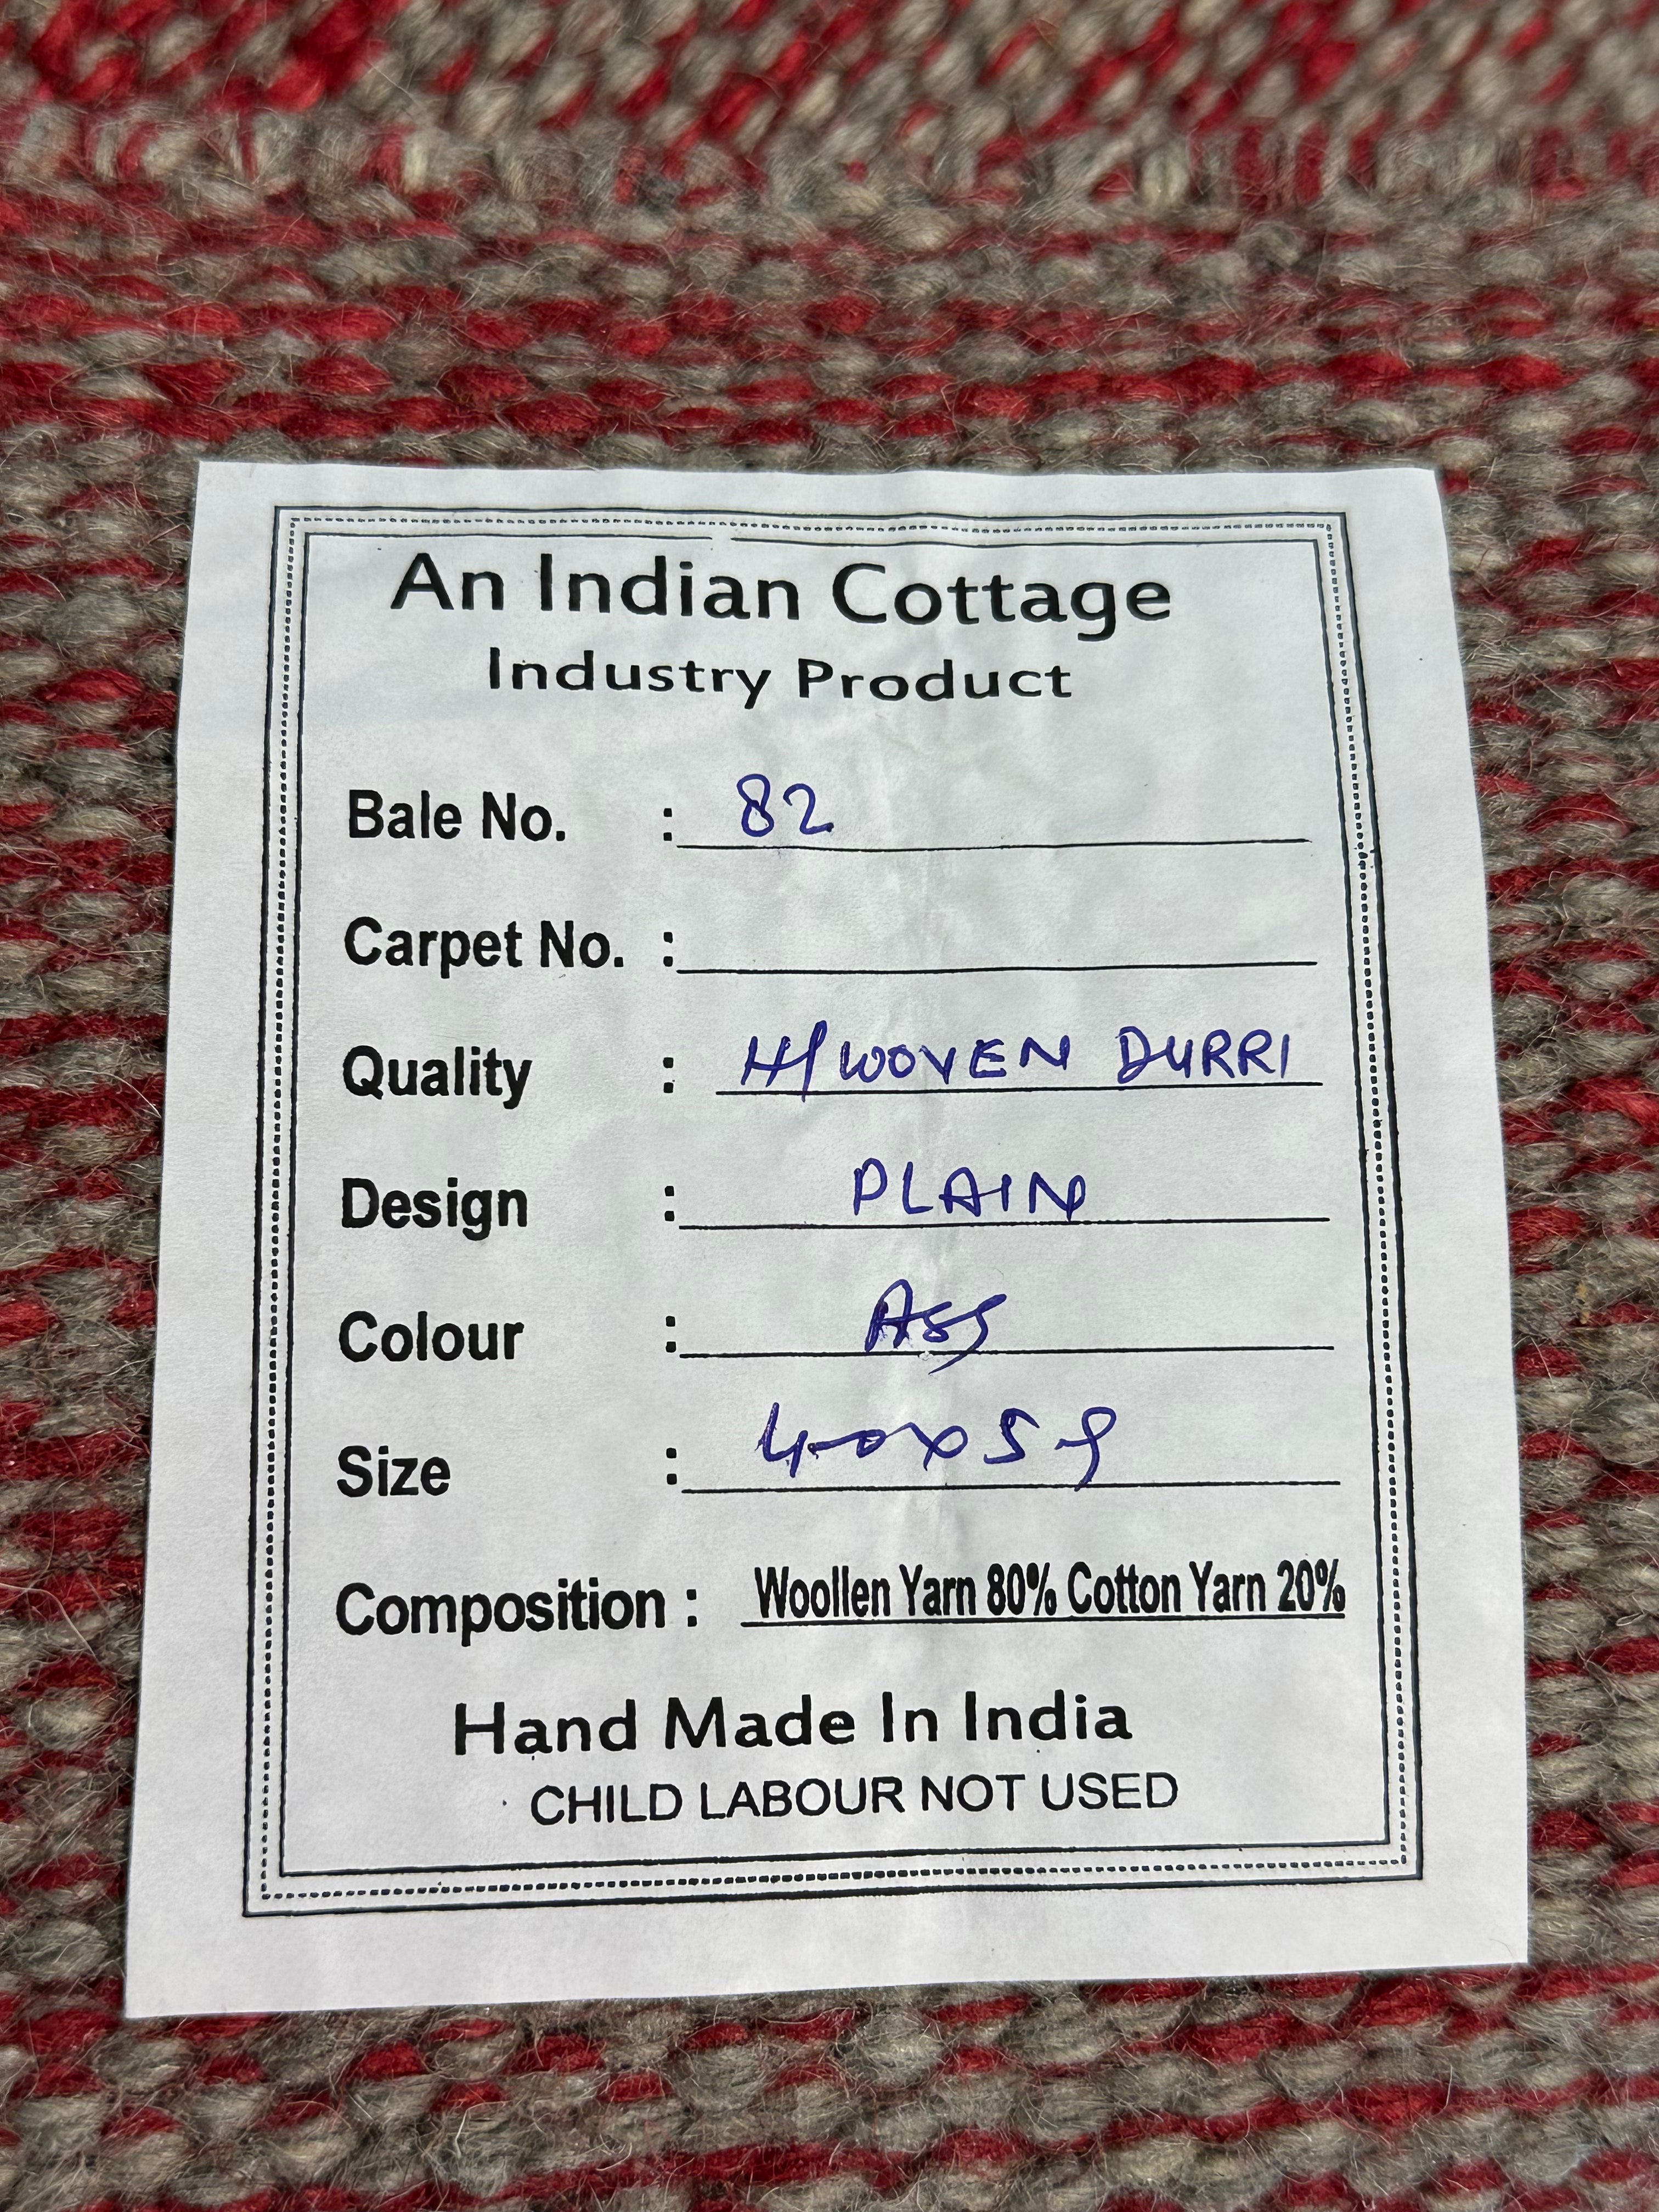 An Indian Cottage
Industry Product
Bale No. : 82
Carpet No. :
Quality : H/WOVEN DURRI
Design : PLAIN
Colour : ASS
Size : 40x59
Composition : Woollen Yarn 80% Cotton Yarn 20%
Hand Made In India
CHILD LABOUR NOT USED